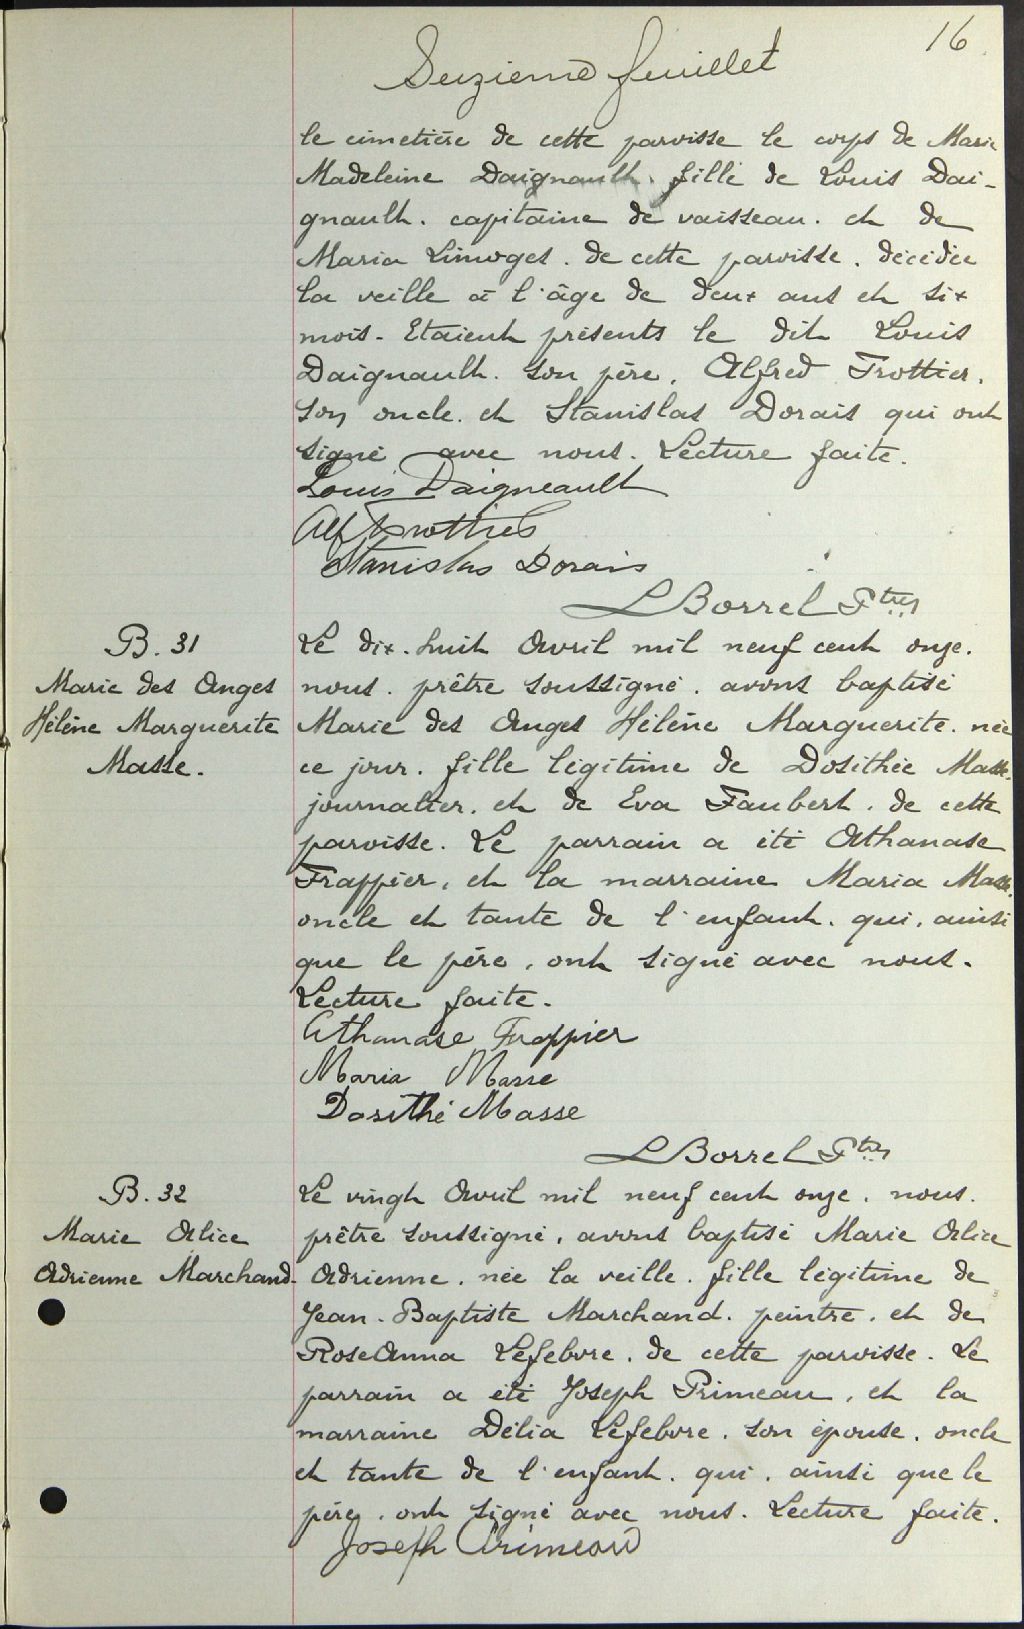 16
Seizième feuillet
le cimetière de cette paroisse le corps de Marie
Madeleine Daignault. fille de Louis Dai-
gnault. capitaine de vaisseau. et de
Maria Limoges. de cette paroisse. décédée
la veille à l'âge de deux ans et six
mois. Etaient présents le dit Louis
Daignault. son père. Alfred Trottier.
son oncle. et Stanislas Dorais qui ont
signé avec nous. Lecture faite.
Louis Daigneault
Alf Trottier
Stanislas Dorais
L Borrel Ptre
B. 31
Marie des Anges
Hélène Marguerite
Masse.
Le dix-huit Avril mil neuf cent onze.
nous. prêtre soussigné. avons baptisé
Marie des Anges Hélène Marguerite. née
ce jour. fille légitime de Dosithée Masse.
journalier. et de Eva Faubert. de cette
paroisse. Le parrain a été Athanase
Frappier, et la marraine Maria Masse.
oncle et tante de l'enfant. qui, ainsi
que le père, ont signé avec nous.
Lecture faite.
Athanase Frappier
Maria Masse
Dosithé Masse
L Borrel Ptre
B. 32
Marie Alice
Adrienne Marchand.
Le vingt Avril mil neuf cent onze, nous.
prêtre soussigné, avons baptisé Marie Alice
Adrienne. née la veille. fille légitime de
Jean-Baptiste Marchand. peintre. et de
RoseAnna Lefebvre. de cette paroisse. Le
parrain a été Joseph Primeau, et la
marraine Délia Lefebvre. son épouse. oncle
et tante de l'enfant. qui. ainsi que le
père. ont signé avec nous. Lecture faite.
Joseph Primeau